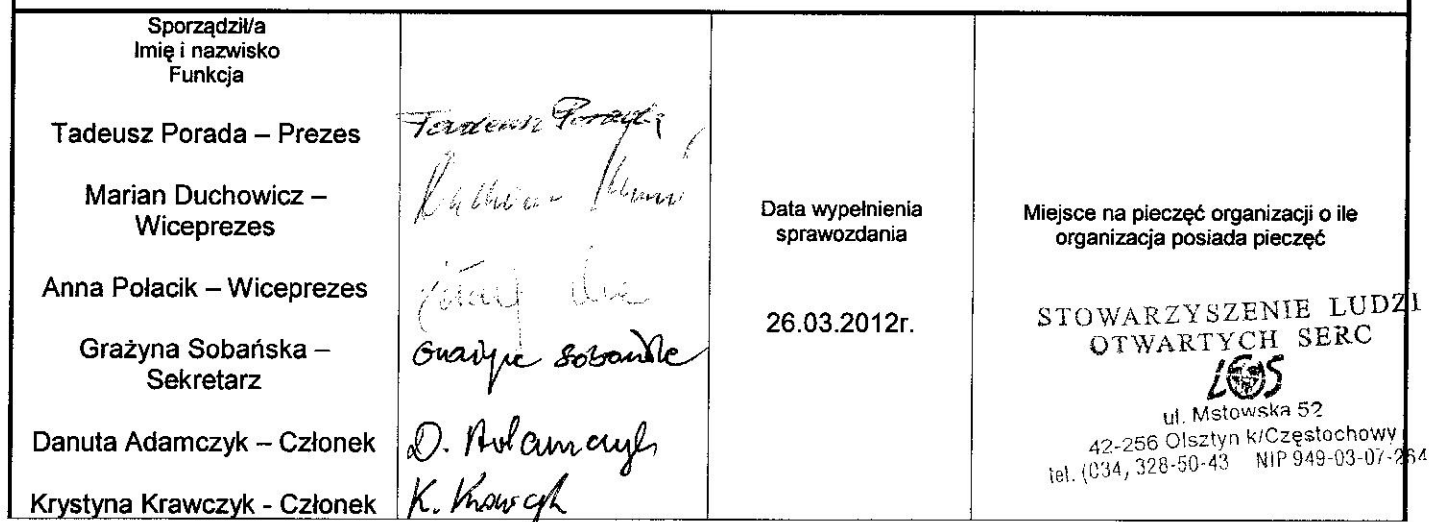 Sporządził/a
Imię i nazwisko
Funkcja
Tadeusz Porada – Prezes
Marian Duchowicz –
Wiceprezes
Anna Połacik – Wiceprezes
Grażyna Sobańska –
Sekretarz
Danuta Adamczyk – Członek
Krystyna Krawczyk - Członek
Tadeusz Porada
D. Adamczyk
K. Krawczyk
Data wypełnienia
sprawozdania
26.03.2012r.
Miejsce na pieczęć organizacji o ile
organizacja posiada pieczęć
STOWARZYSZENIE LUDZI
OTWARTYCH SERC
LOS
ul. Mstowska 52
42-256 Olsztyn k/Częstochowy
tel. (034, 328-50-43 NIP 949-03-07-264